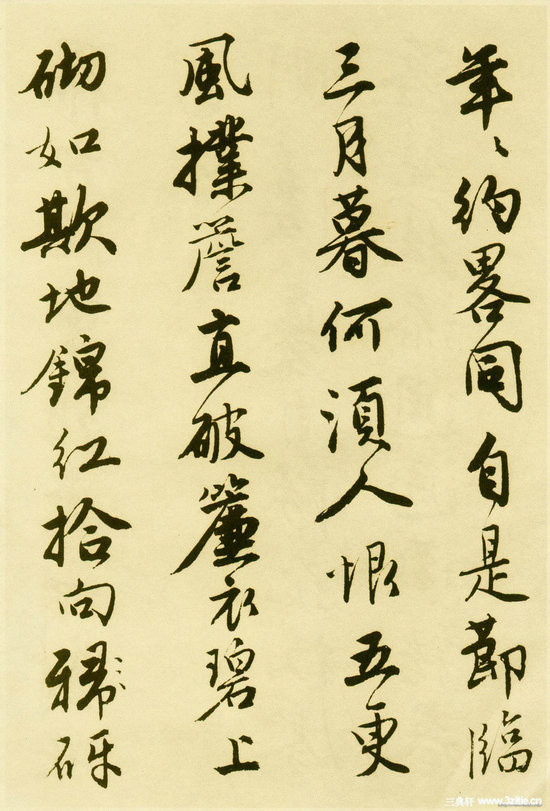 年々約畧同自是節臨
三月暮何須人恨五更
風撲簷直破簾衣碧上
砌如欺地錦紅拾向砑
三典轩 www.3zitie.cn